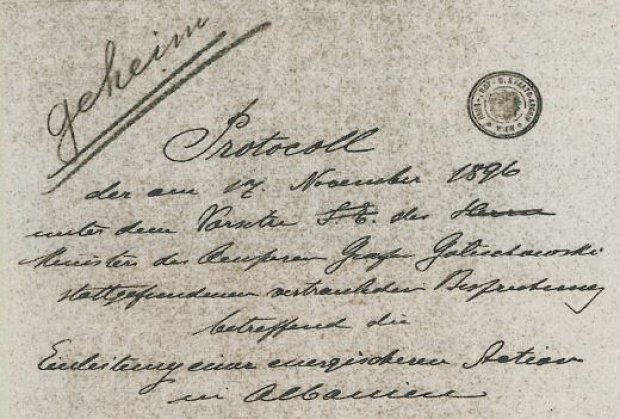 geheim
HAUS-, HOF- U. STAATS-ARCHIV
WIEN
Protocoll
der am 17. November 1896
unter dem Vorsitze S. E. des Herrn
Ministers des Aeusseren Grafen Goluchowski
stattgefundenen vertraulichen Besprechung
betreffend die
Einleitung einer energischeren Action
in Albanien